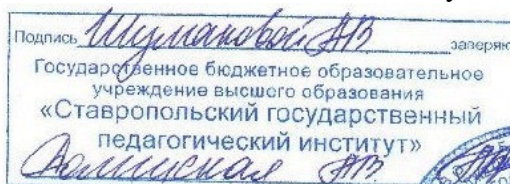 Подпись Шумаковой АВ заверяю
Государственное бюджетное образовательное
учреждение высшего образования
«Ставропольский государственный
педагогический институт»